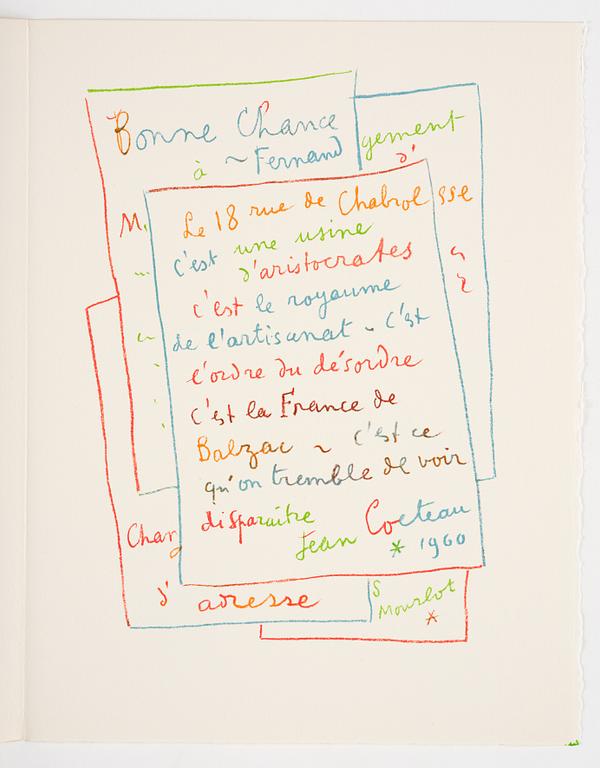 Bonne Chance
à ~ Fernand
gement
d'
M.
Le 18 rue de Chabrol
sse
c'est une usine
d'aristocrates
c'est le royaume
de l'artisanat ~ c'est
l'ordre du désordre
c'est la France de
Balzac ~ c'est ce
qu'on tremble de voir
disparaître
Jean Cocteau
* 1960
Chan
d'
adresse
S
Mourlot
*